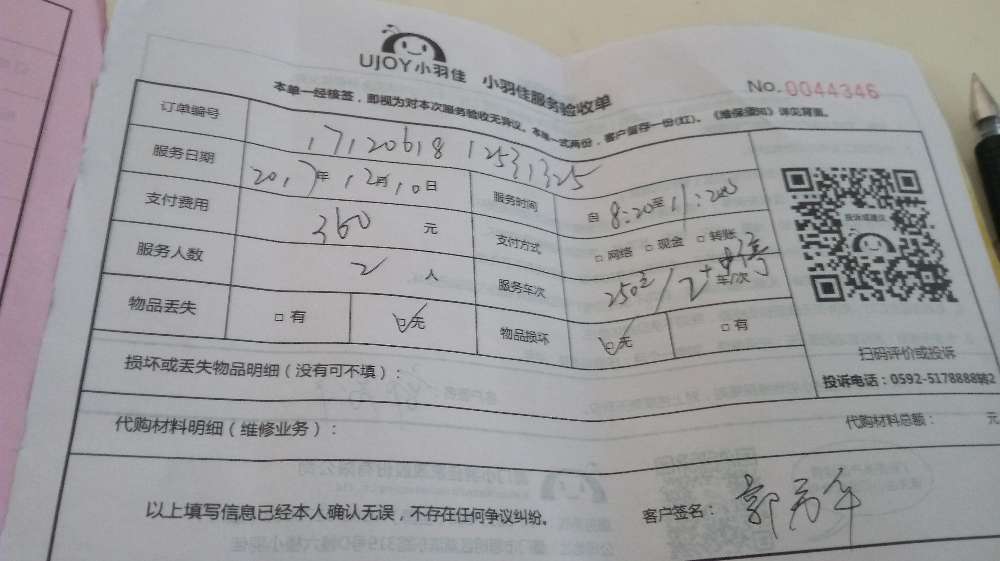 UJOY小羽佳 小羽佳服务验收单
No.0044346
本单一经核签，即视为对本次服务验收无异议。本单一式两份，客户留存一份(红)。《维保须知》详见背面。
订单编号 1712061812531325
服务日期 2017年12月10日 服务时间 自8:20至11:20
支付费用 360元 支付方式 □网络 □现金 □转账
服务人数 2人 服务车次 车/次
物品丢失 □有 ☑无 物品损坏 ☑无 □有
投诉或建议
扫码评价或投诉
投诉电话：0592-5178888转2
损坏或丢失物品明细（没有可不填）：
代购材料明细（维修业务）： 代购材料总额： 元
以上填写信息已经本人确认无误，不存在任何争议纠纷。 客户签名：